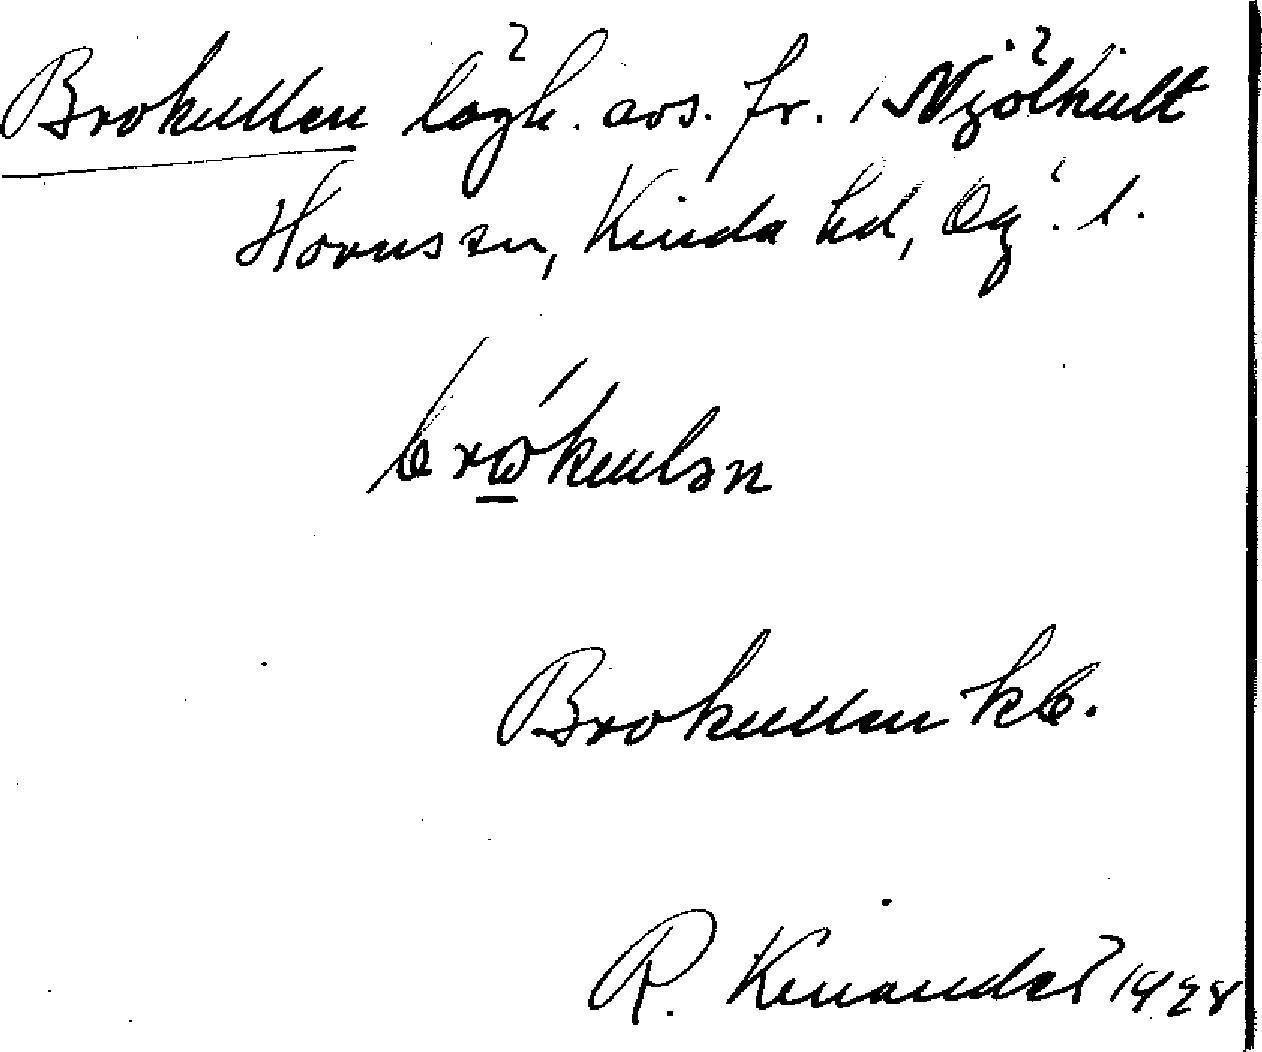 Brokullen lägh. avs. fr. 1 Mjölkult
Horns sn, Kinda hd, Ög. l.
Brokullen kb.
R. Kinander 1928